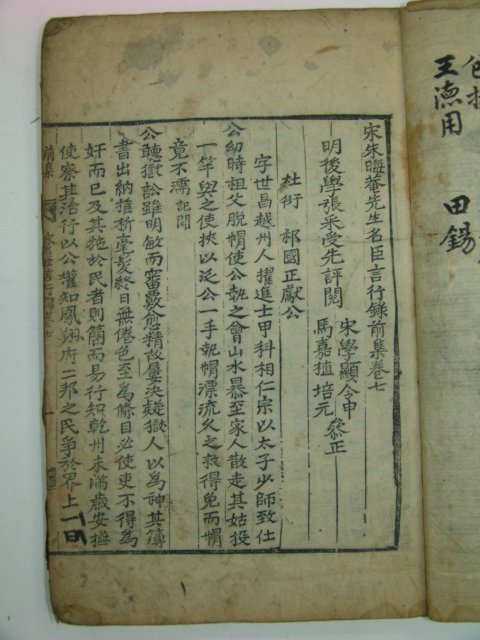 包拯
王德用
田錫
宋朱晦菴先生名臣言行錄前集卷七
明後學張采受先評閱
宋學顯令申
馬嘉植培元
叅正
杜衍 祁國正獻公
字世昌越州人擢進士甲科相仁宗以太子少師致仕
公幼時祖父脫帽使公執之會山水暴至家人散走其姑投
一竿與之使挾以泛公一手執帽漂流久之救得免而帽
竟不濡記聞
公聽獄訟雖明敏而審覈愈精故屢決疑獄人以為神其簿
書出納推析毫髮終日無倦色至為條目必使吏不得為
奸而已及其施於民者則簡而易行知乾州未滿歲安撫
使察其治行以公權知鳳翔府二邦之民爭於界上一曰
前集